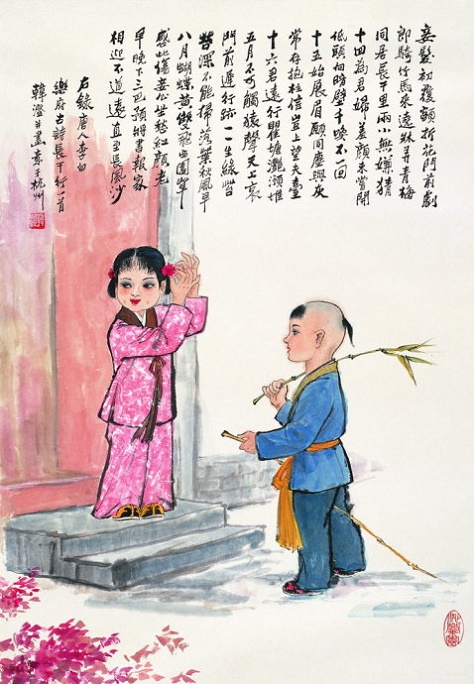 妾髮初覆額折花門前劇
郎騎竹馬來遶牀弄青梅
同居長干里兩小無嫌猜
十四為君婦羞顏未嘗開
低頭向暗壁千喚不一回
十五始展眉願同塵與灰
常存抱柱信豈上望夫臺
十六君遠行瞿塘灩澦堆
五月不可觸猿聲天上哀
門前遲行跡一一生綠苔
苔深不能掃落葉秋風早
八月蝴蝶黃雙飛西園草
感此傷妾心坐愁紅顏老
早晚下三巴預將書報家
相迎不道遠直至長風沙
右錄唐人李白
樂府古詩長干行一首
韓澄並畫于杭州